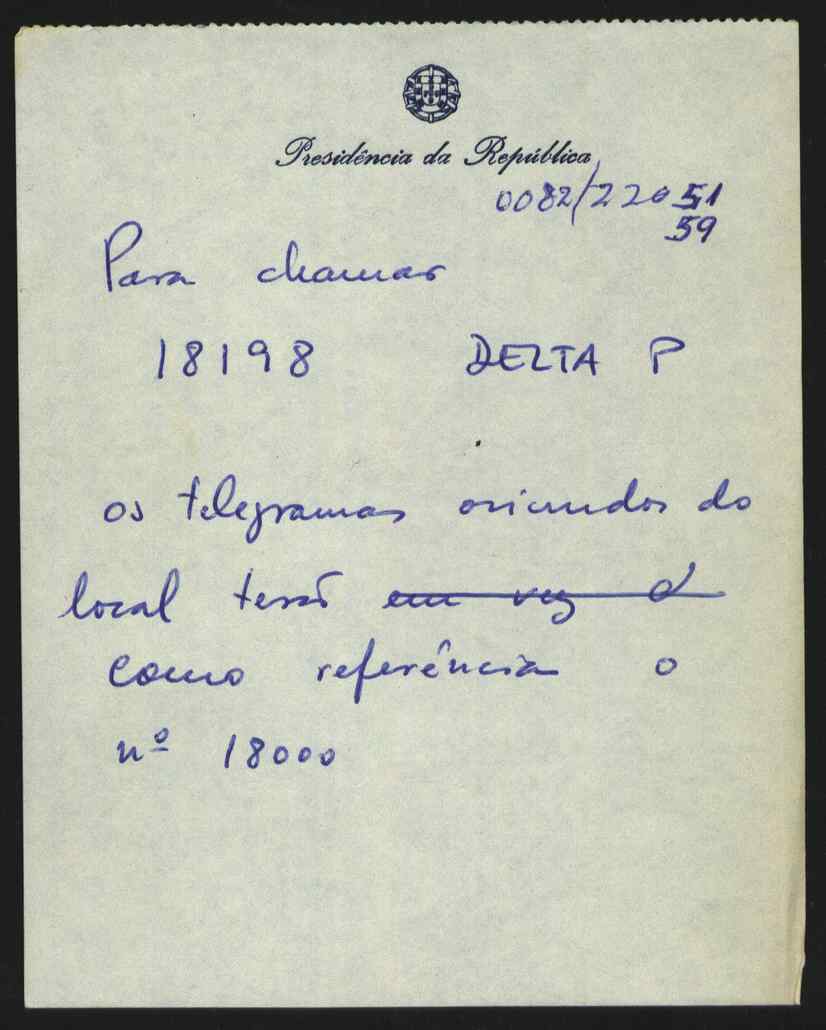 Presidência da República
0082/220 51
59
Para chamar
18198 DELTA P
os telegramas oriundos do
local terão em vez d
como referência o
nº 18000